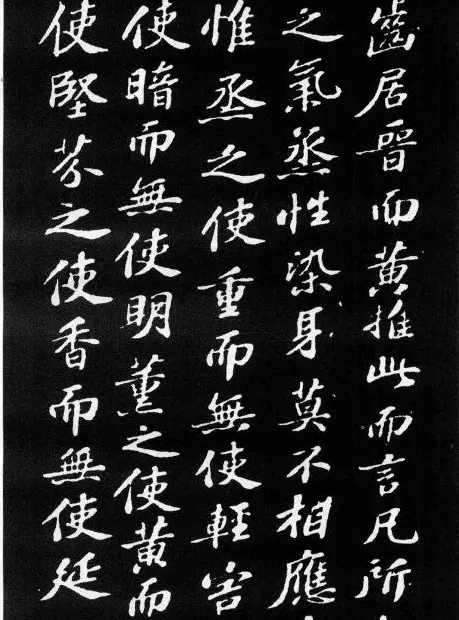 齒居晉而黃推此而言凡所
之氣蒸性染身莫不相應
惟烝之使重而無使輕害
使暗而無使明薰之使黃而
使堅芬之使香而無使延